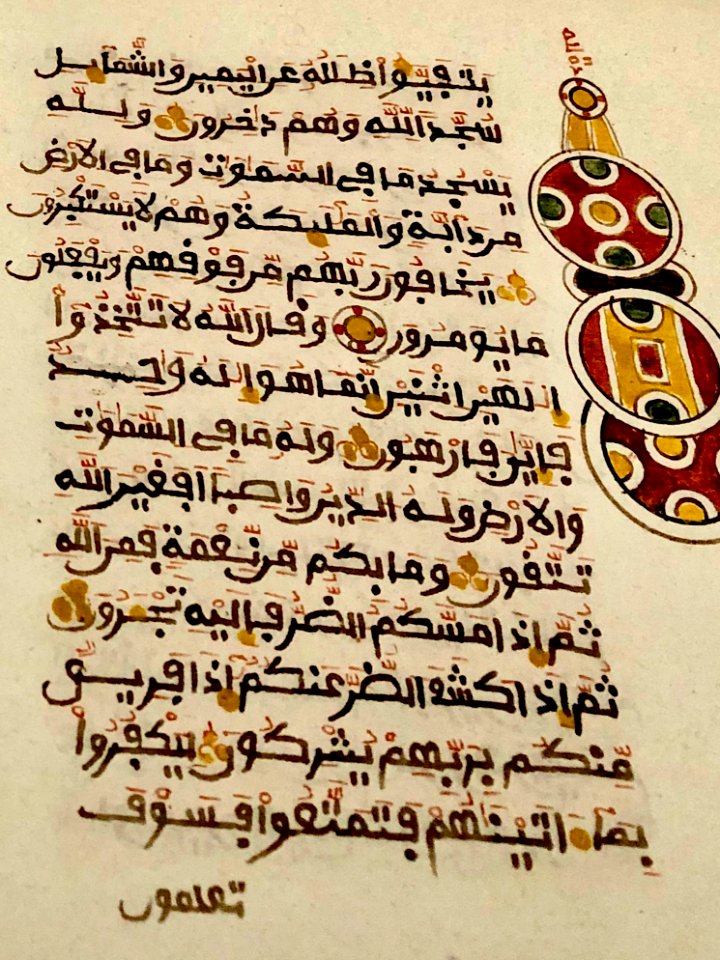 يتفيؤا ظلله عن اليمين والشمايل
سجدا لله وهم دخرون ولله
يسجد ما في السموت وما في الارض
من دابة والمليكة وهم لا يستكبرون
يخافون ربهم من فوقهم ويفعلون
ما يومرون وقال الله لا تتخذوا
الهين اثنين انما هو اله وحد
فايي فارهبون وله ما في السموت
والارض وله الدين واصبا افغير الله
تتقون وما بكم من نعمة فمن الله
ثم اذا مسكم الضر فاليه تجرون
ثم اذا كشف الضر عنكم اذا فريق
منكم بربهم يشركون ليكفروا
بما اتينهم فتمتعوا فسوف
تعلمون